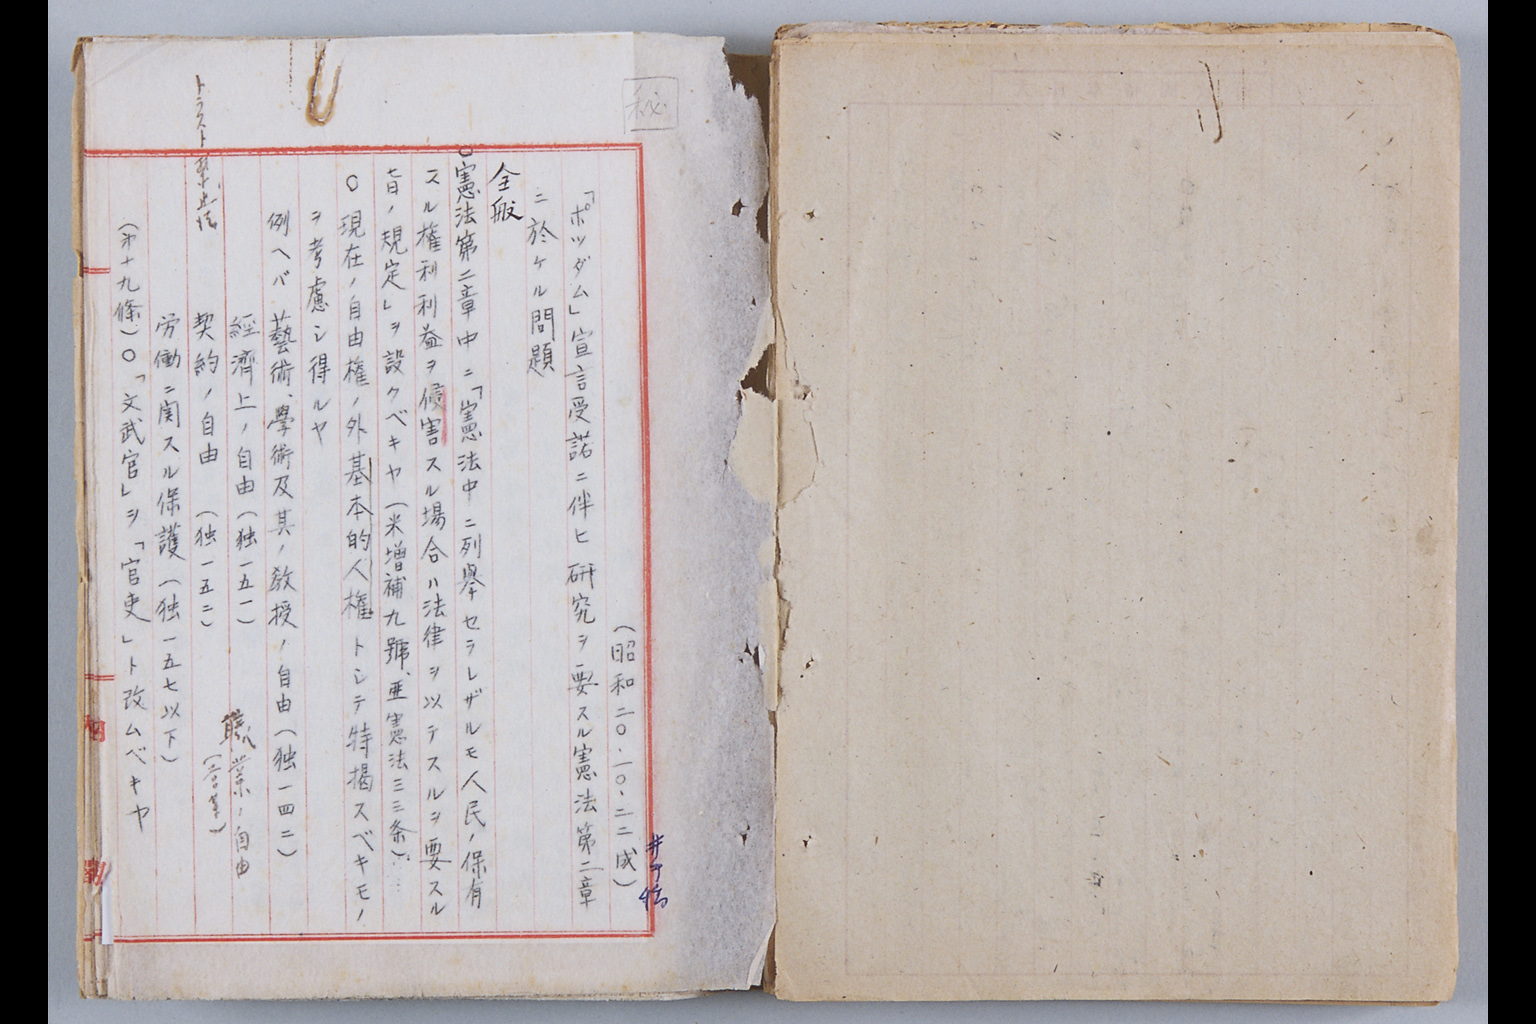 秘
(昭和二〇・一〇・二二成)
「ポツダム」宣言受諾ニ伴ヒ研究ヲ要スル憲法第二章
ニ於ケル問題
全般
○憲法第二章中ニ「憲法中ニ列挙セラレザルモ人民ノ保有
スル権利利益ヲ侵害スル場合ハ法律ヲ以テスルヲ要スル
旨ノ規定」ヲ設クベキヤ(米増補九號、亜憲法三三条)
○現在ノ自由権ノ外基本的人権トシテ特掲スベキモノ
ヲ考慮シ得ルヤ
例ヘバ 藝術、學術及其ノ教授ノ自由(独一四二)
経濟上ノ自由(独一五一)
職業ノ自由
契約ノ自由 (独一五二)
トラスト禁止法
労働ニ関スル保護(独一五七以下)
(第十九條)○「文武官」ヲ「官吏」ト改ムベキヤ